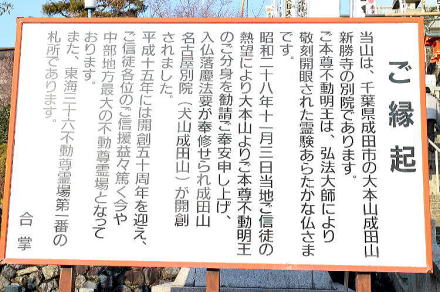 ご縁起
当山は、千葉県成田市の大本山成田山
新勝寺の別院であります。
ご本尊不動明王は、弘法大師により
敬刻開眼された霊験あらたかな仏さま
です。
昭和二十八年十一月三日当地ご信徒の
熱望により大本山よりご本尊不動明王
のご分身を勧請ご奉安申し上げ、
入仏落慶法要が奉修せられ成田山
名古屋別院（犬山成田山）が開創
されました。
平成十五年には開創五十周年を迎え、
ご信徒各位のご信援益々篤く今や
中部地方最大の不動尊霊場となって
おります。
また、東海三十六不動尊霊場第一番の
札所であります。
合掌